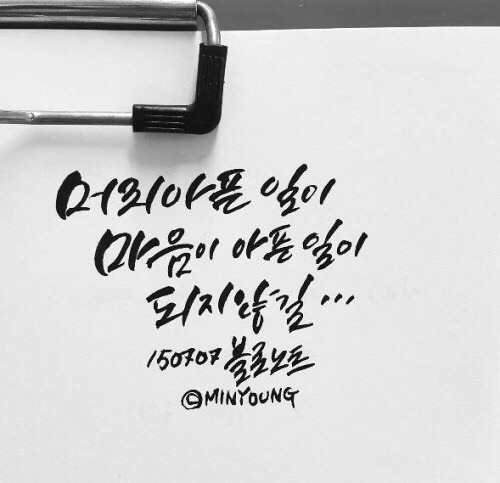 머리아픈 일이
마음이 아픈 일이
되지않길...
150707 블로노트
©MINYOUNG